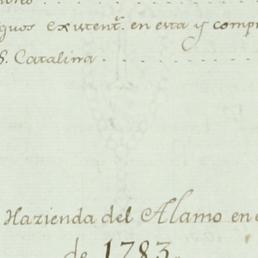 guos existent.^s en esta y comp
S. Catalina . . . . . . . . . . .
Hazienda del Alamo en
de 1783.